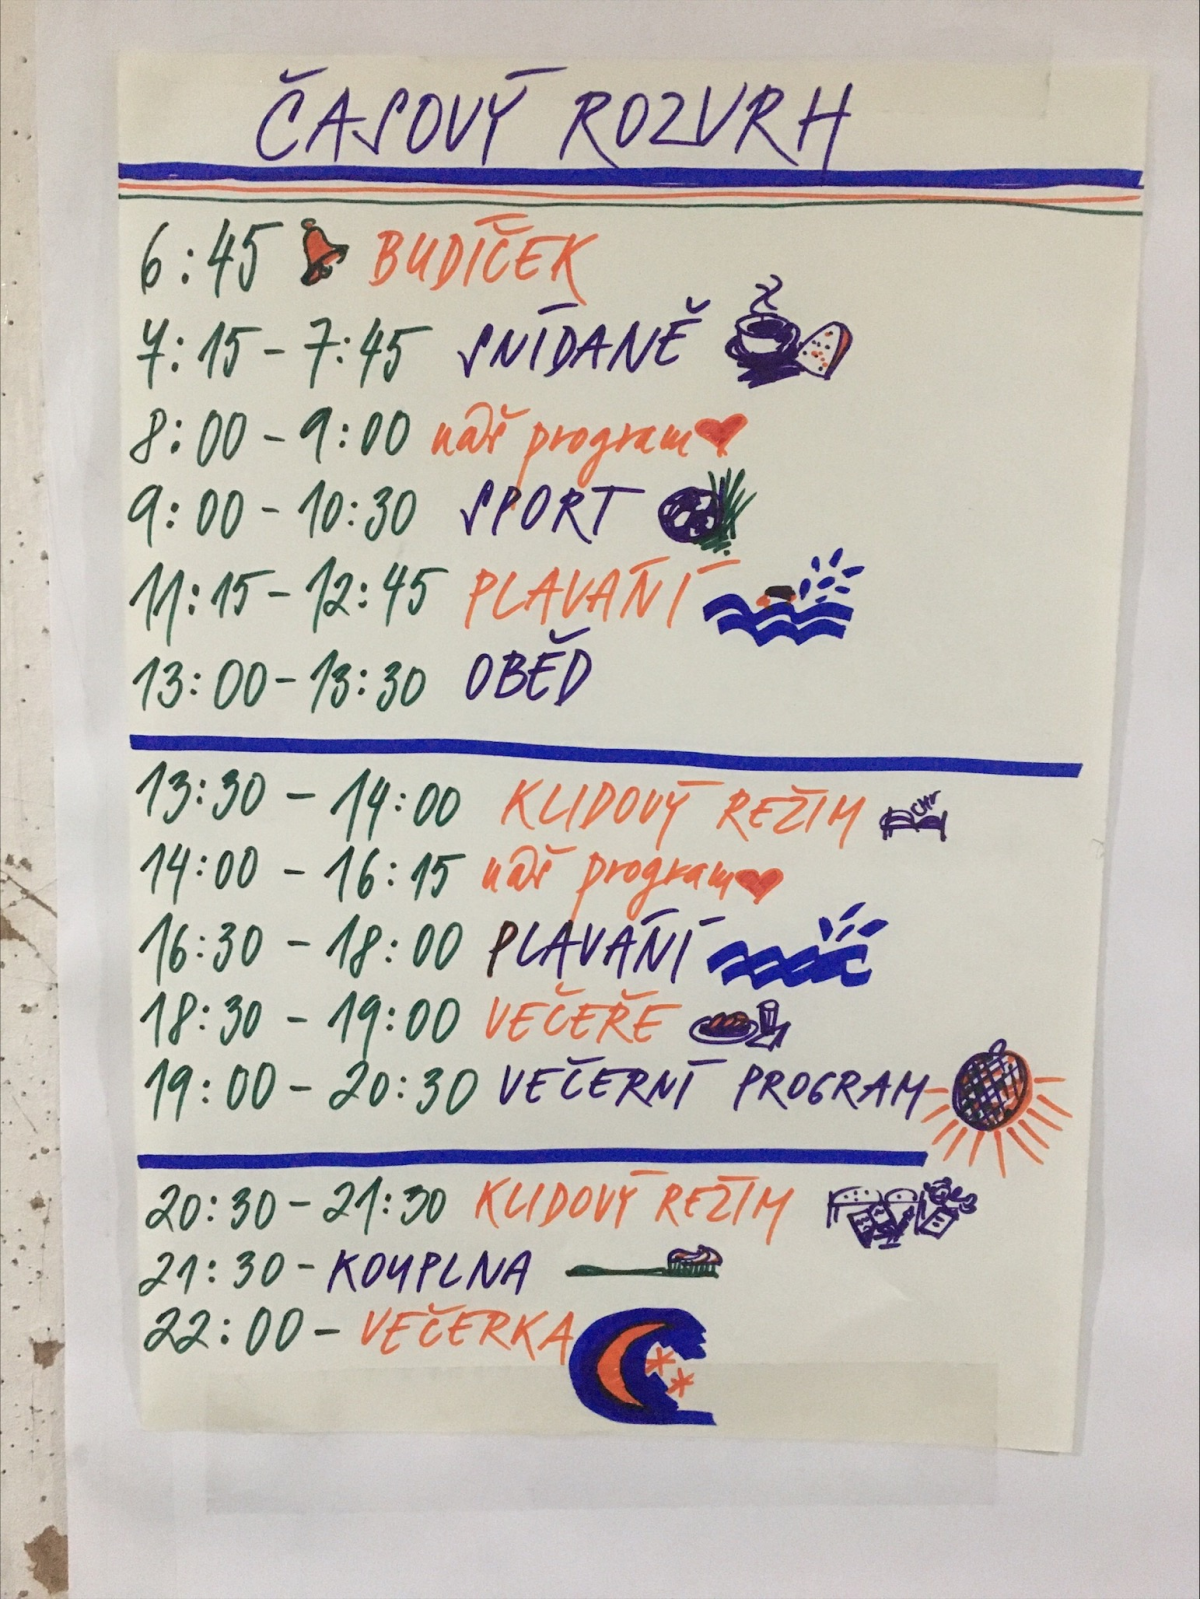 ČASOVÝ ROZVRH
6:45 BUDÍČEK
7:15 - 7:45 SNÍDANĚ
8:00 - 9:00 náš program
9:00 - 10:30 SPORT
11:15 - 12:45 PLAVÁNÍ
13:00 - 13:30 OBĚD
13:30 - 14:00 KLIDOVÝ REŽIM
14:00 - 16:15 náš program
16:30 - 18:00 PLAVÁNÍ
18:30 - 19:00 VEČEŘE
19:00 - 20:30 VEČERNÍ PROGRAM
20:30 - 21:30 KLIDOVÝ REŽIM
21:30 - KOUPLNA
22:00 - VEČERKA